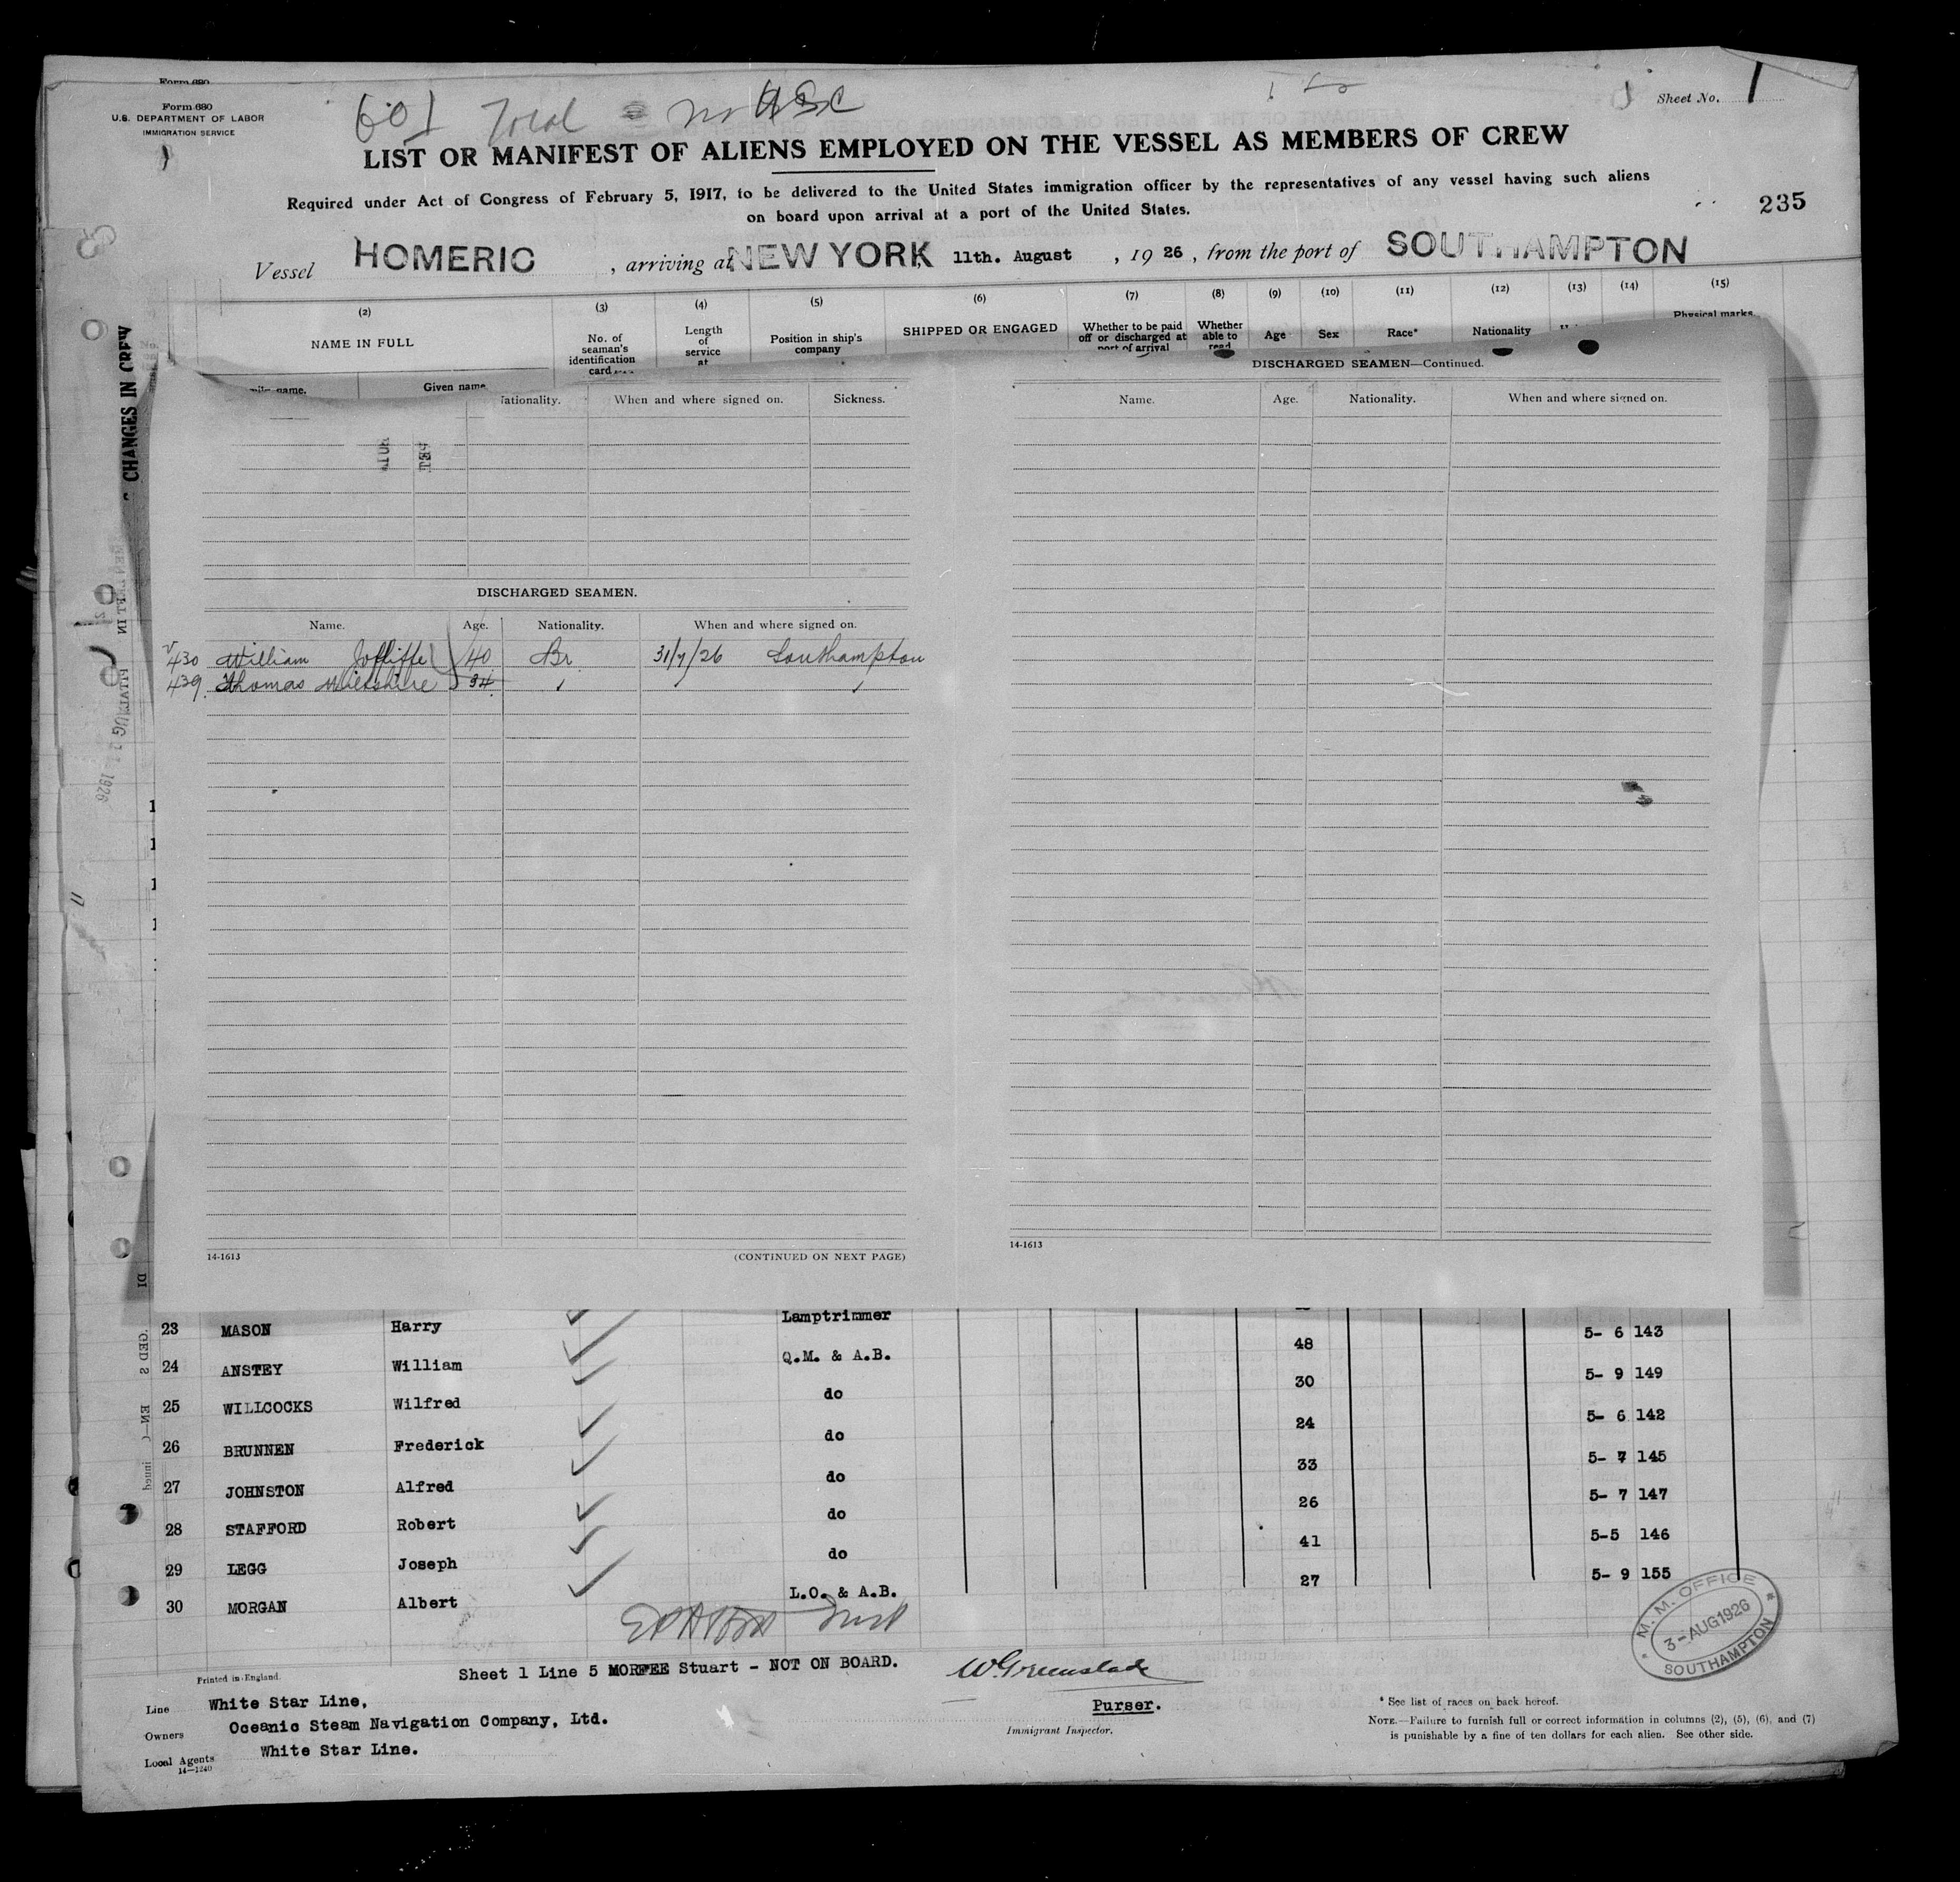 Form 680
Form 680
U.S. DEPARTMENT OF LABOR
IMMIGRATION SERVICE
601 Total = no USC
Sheet No. 1
LIST OR MANIFEST OF ALIENS EMPLOYED ON THE VESSEL AS MEMBERS OF CREW
Required under Act of Congress of February 5, 1917, to be delivered to the United States immigration officer by the representatives of any vessel having such aliens
on board upon arrival at a port of the United States.
235
Vessel HOMERIC, arriving at NEW YORK 11th. August, 19 26, from the port of SOUTHAMPTON
(2) (3) (4) (5) (6) (7) (8) (9) (10) (11) (12) (13) (14) (15)
NAME IN FULL
No. of seaman's identification card
Length of service at
Position in ship's company
SHIPPED OR ENGAGED
Whether to be paid off or discharged at port of arrival
Whether able to read
Age
Sex
Race*
Nationality
Physical marks,
name. Given name
CHANGES IN CREW
Nationality. When and where signed on. Sickness.
DISCHARGED SEAMEN.
Name. Age. Nationality. When and where signed on.
430 William Jolliffe 40 Br 31/7/26 Southampton
439. Thomas Wiltshire 34
14-1613 (CONTINUED ON NEXT PAGE)
DISCHARGED SEAMEN—Continued.
Name. Age. Nationality. When and where signed on.
14-1613
23 MASON Harry Lamptrimmer 5- 6 143
24 ANSTEY William Q.M. & A.B. 48 5- 9 149
25 WILLCOCKS Wilfred do 30 5- 6 142
26 BRUNNEN Frederick do 24 5- 7 145
27 JOHNSTON Alfred do 33 5- 7 147
28 STAFFORD Robert do 26 5-5 146
29 LEGG Joseph do 41 5- 9 155
30 MORGAN Albert L.O. & A.B. 27
Printed in England.
Sheet 1 Line 5 MORFEE Stuart - NOT ON BOARD.
W. Greenslade
Purser.
Immigrant Inspector.
Line White Star Line,
Owners Oceanic Steam Navigation Company, Ltd.
Local Agents White Star Line.
14—1240
M. M. OFFICE
3-AUG 1926
SOUTHAMPTON
* See list of races on back hereof.
NOTE.—Failure to furnish full or correct information in columns (2), (5), (6), and (7)
is punishable by a fine of ten dollars for each alien. See other side.